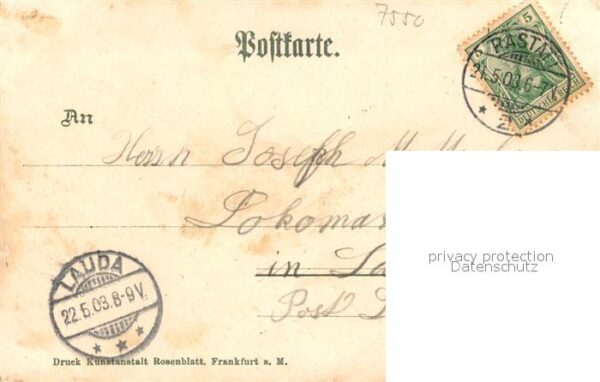 7550
Postkarte.
5
RASTATT
21.5.03.6-7
* 2
DEUTSCHES REICH
An
Herrn Joseph M
Lokoma
in
Post
privacy protection
Datenschutz
LAUDA
22.5.03.8-9V.
* * *
Druck Kunstanstalt Rosenblatt, Frankfurt a. M.